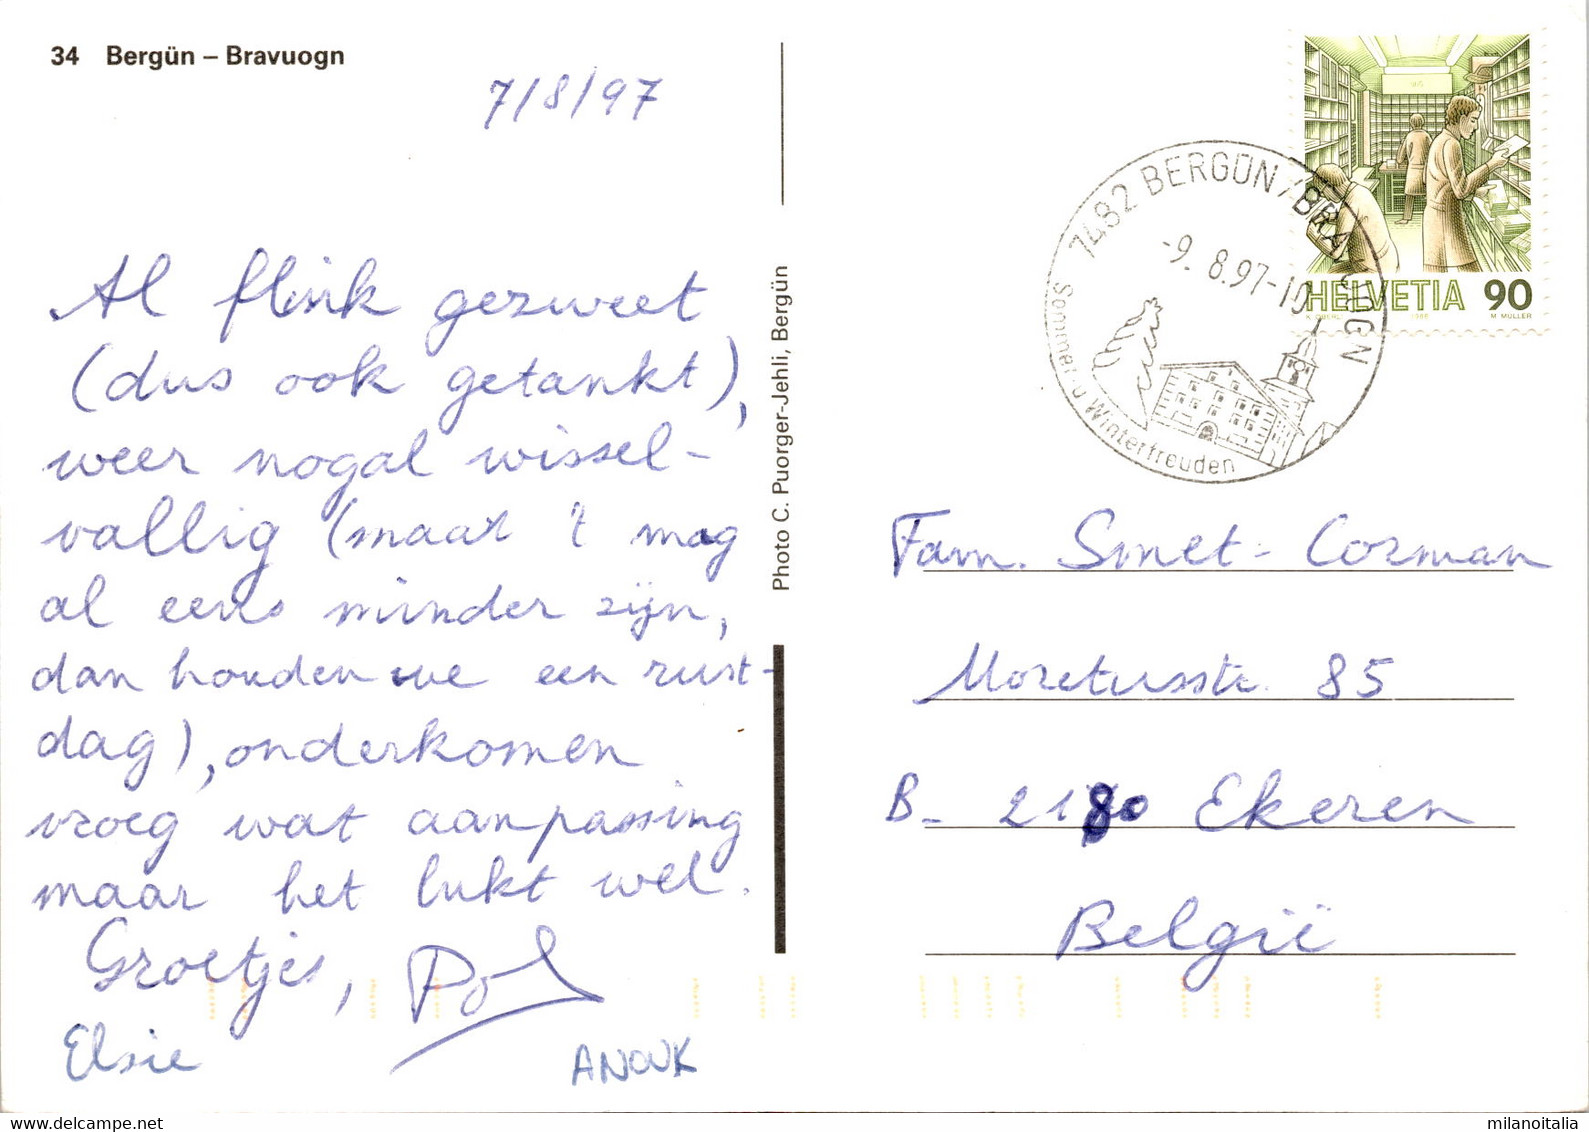 34 Bergün – Bravuogn
7/8/97
Al flink gezweet
(dus ook getankt),
weer nogal wissel-
vallig (maar 't mag
al eens minder zijn,
dan houden we een rust-
dag), onderkomen
vroeg wat aanpassing
maar het lukt wel.
Groetjes,
Elsie
ANOUK
Photo C. Puorger-Jehli, Bergün
7482 BERGÜN/BRAVUOGN
-9. 8.97-10
Sommer- u Winterfreuden
HELVETIA 90
M MÜLLER
Fam. Smet - Corman
Moretusstr. 85
B- 2180 Ekeren
België
milanoitalia